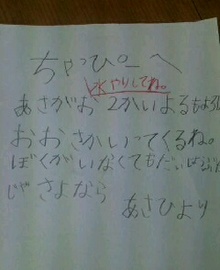 ちゃぴーへ
水やりしてね。
あさがお 2かいよるもよろしく
おおさかいってくるね。
ぼくがいなくてもだいじょうぶだ
じゃ さよなら
あさひより